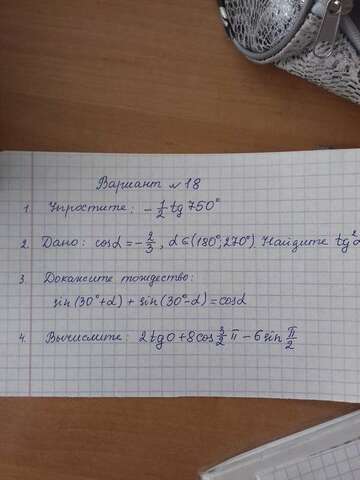 Вариант № 18
1. Упростите: -1/2 tg 750°
2. Дано: cosα = -2/3, α ∈ (180°; 270°). Найдите tg²α
3. Докажите тождество:
sin(30°+α) + sin(30°-α) = cosα
4. Вычислите: 2tg0 + 8cos 3/2 π - 6sin π/2